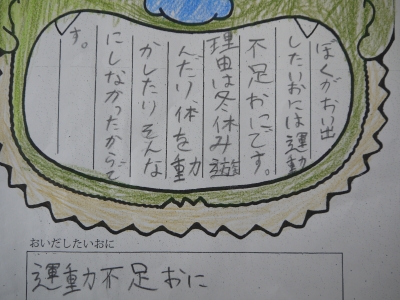 ぼくがおい出
したいおには運動
不足おにです。
理由は冬休み遊
んだり、体を動
かしたりそんな
にしなかったからで
す。
おいだしたいおに
運動不足おに